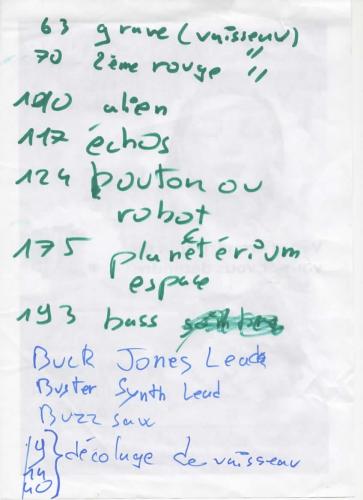 63 grave (vaisseau)
70 2ème rouge "
100 alien
117 échos
124 bouton ou
robot
175 planetérium
espace
193 bass
Buck Jones Lead
Buster Synth Lead
Buzz saw
19
14 décolage de vaisseau
40